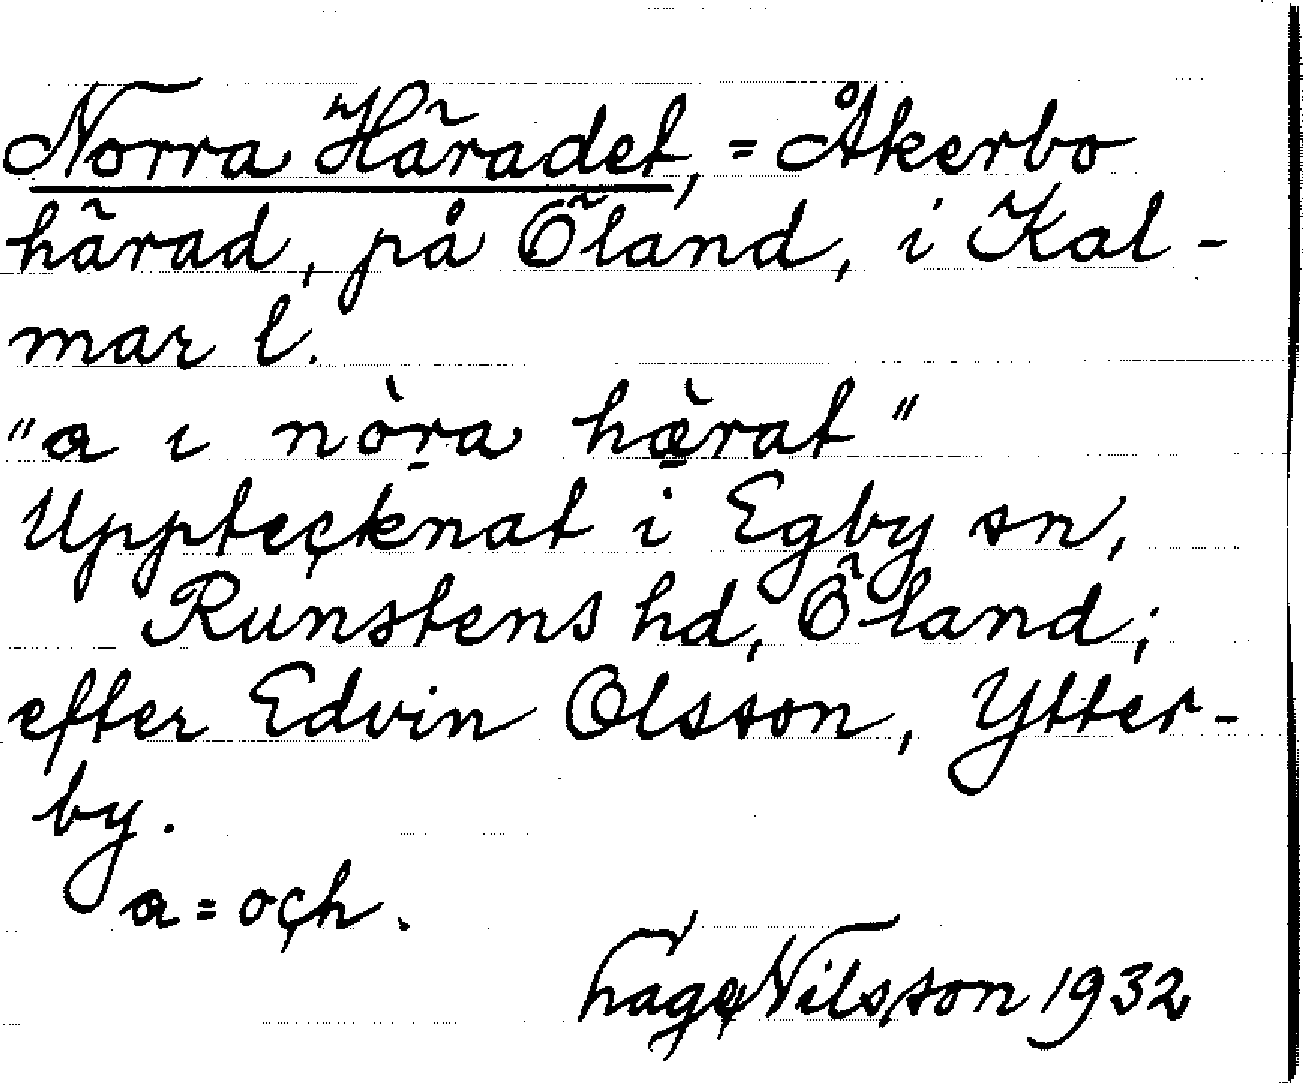 Norra Häradet, = Åkerbo
härad, på Öland, i Kal-
mar l.
"a ı nòra hæ̀rat"
Upptecknat i Egby sn,
Runstens hd, Öland;
efter Edvin Olsson, Ytter-
by.
a = och.
Nilsson 1932